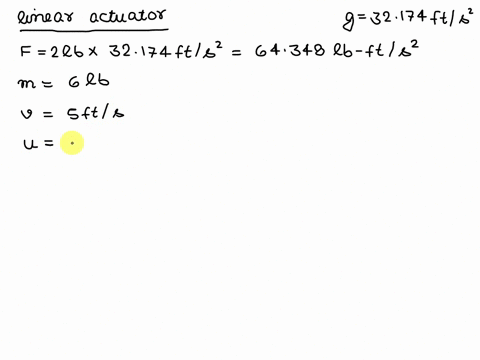 linear actuator
g = 32.174 ft/s²
F = 2lb × 32.174 ft/s² = 64.348 lb-ft/s²
m = 6 lb
v = 5 ft/s
u =